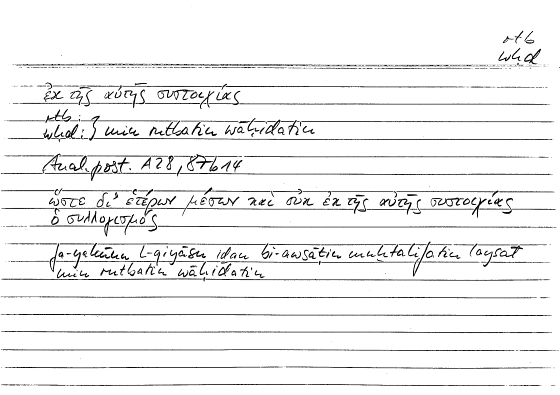 rtb
whd
ἐκ τῆς αὐτῆς συστοιχίας
rtb:
wḥd: } min rutbatin wāḥidatin
Anal. post. A 28, 87b14
ὥστε δι' ἑτέρων μέσων καὶ οὐκ ἐκ τῆς αὐτῆς συστοιχίας
ὁ συλλογισμός
fa-yakūnu l-qiyāsu iḏan bi-awsāṭin muḫtalifatin laysat
min rutbatin wāḥidatin